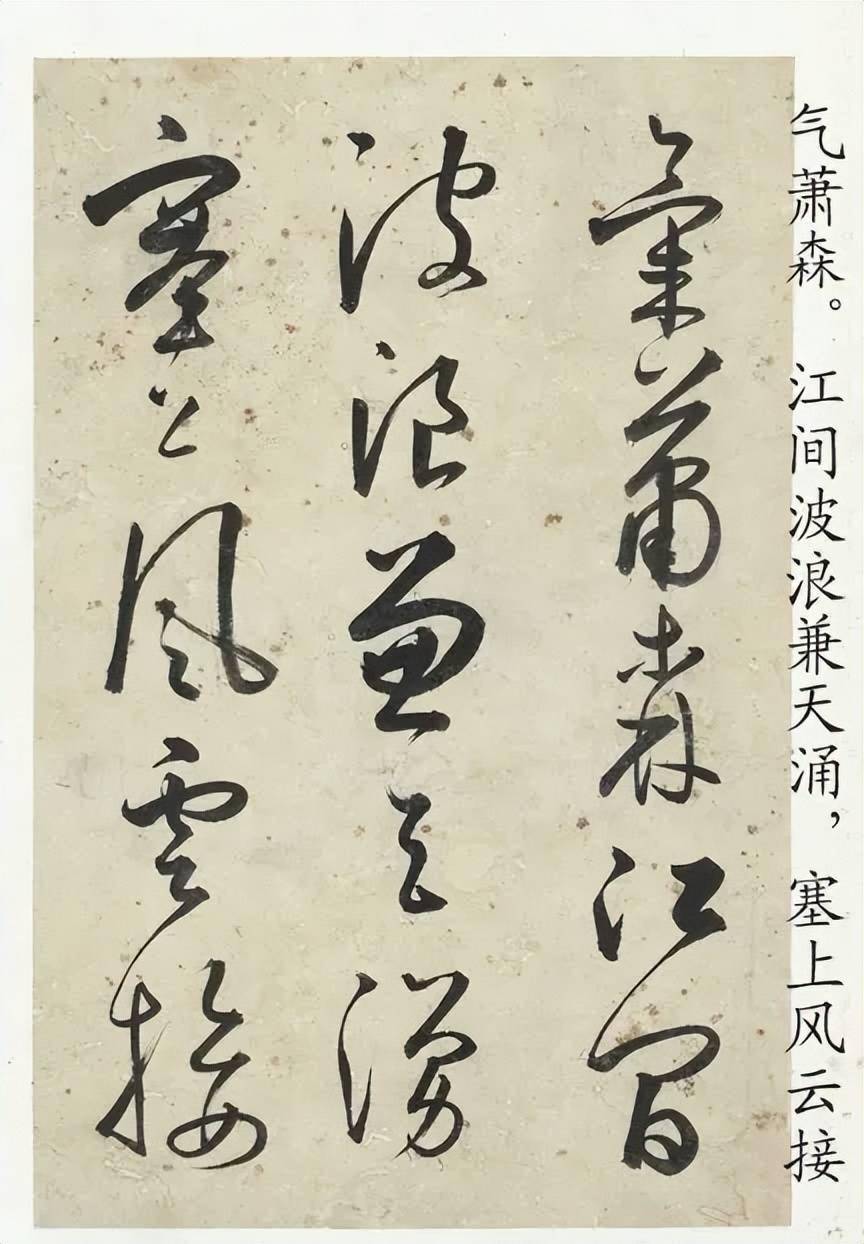 气萧森。 江间波浪兼天涌， 塞上风云接
氣蕭森江間
波浪兼天湧
塞上風雲接